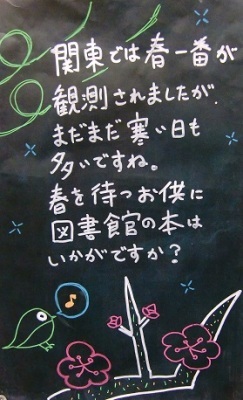 関東では春一番が
観測されましたが、
まだまだ寒い日も
多いですね。
春を待つお供に
図書館の本は
いかがですか?